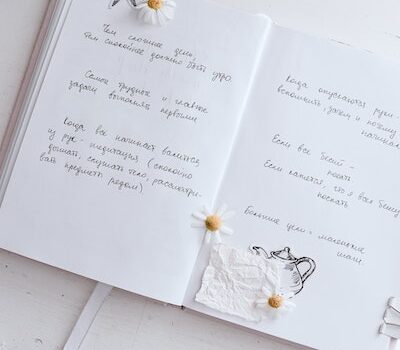 Чем сложнее день,
тем спокойнее должно быть утро.
Самое трудное и главное
задачи выполнять первыми
Когда все начинает валится
из рук - медитация, (спокойно
дышать, слушать тело, рассматри-
вать предметы рядом)
Когда опускаются руки -
вспомнить, зачем и почему
начинал
Если все бесит -
поесть.
Если кажется, что я всех бешу
поспать
Большие цели = маленькие
шаги.